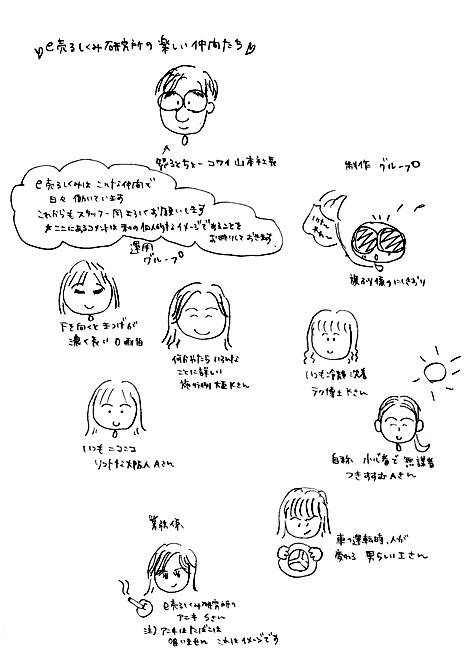 e売るしくみ研究所の楽しい仲間たち
怒るとちょーコワイ 山本社長
制作 グループ
e売るしくみは こんな仲間で
日々 働いています
これからも スタッフ一同 よろしくお願いします
ここにあるコメントは 私の個人的なイメージであることを
お断りしておきます
運用
グループ
下を向くと まつげが
濃く長い O西
何かやたら いろんな
ことに詳しい
Kさん
いつもニコニコ
Aさん
にしきおり
いつも冷静沈着
テク博士 Kさん
自称 小心者で 無謀者
つきすすむAさん
車の運転時、人が
変わる 男らしい Iさん
e売るしくみ研究所の
アニキ Sさん
注)アニキはたばこは
吸いません これはイメージです